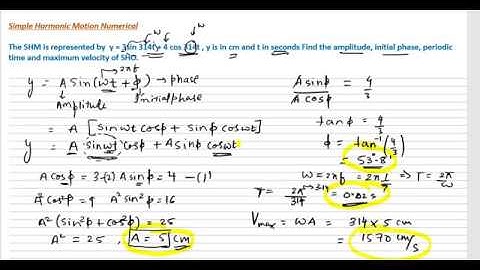 Simple Harmonic Motion Numerical
w
w
The SHM is represented by y = 3sin 314t + 4 cos 314t , y is in cm and t in seconds Find the amplitude, initial phase, periodic
time and maximum velocity of SHO.
→ 2πf
y = A Sin(wt + φ) → phase
↓ Amplitude ↓ initial phase
= A [sinwt cosφ + sinφ coswt]
y = A sinwt cosφ + A sinφ coswt
A cosφ = 3 -(2) A sinφ = 4 -(1)
A²cos²φ = 9 A²sin²φ = 16
A²(sin²φ + cos²φ) = 25
A² = 25 , A = 5 cm
A sinφ / A cosφ = 4/3
tanφ = 4/3
φ = tan⁻¹(4/3)
= 53°8'
W = 2πf = 2π 1/T ⇒ T = 2π/w
T = 2π/314 → 314 = 0.02 s
Vmax = WA = 314 x 5 cm
= 1570 cm/s